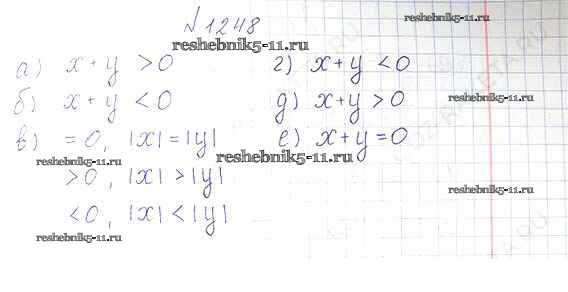 №1248
reshebnik5-11.ru
reshebnik5-11.ru
а) x + y > 0
г) x + y < 0
б) x + y < 0
д) x + y > 0
reshebnik5-11.ru
в) = 0, |x| = |y|
е) x + y = 0
reshebnik5-11.ru
reshebnik5-11.ru
> 0, |x| > |y|
reshebnik5-11.ru
< 0, |x| < |y|
reshebnik5-11.ru